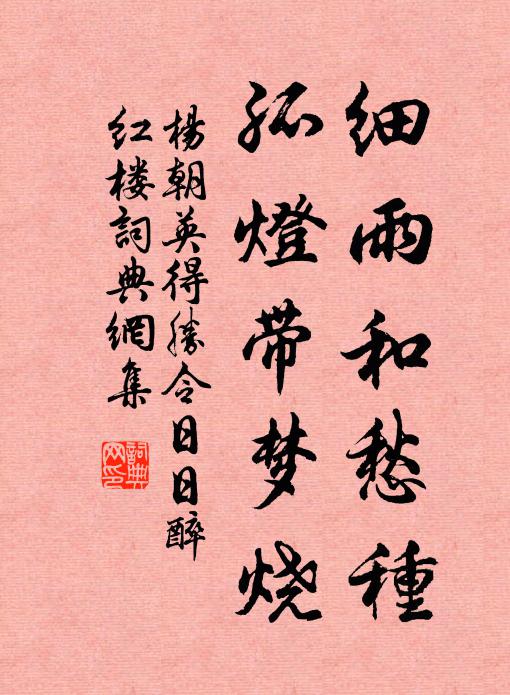 细雨和愁種
孤燈带梦烧
楊朝英得勝令日日醉
红楼詞典網集
詞典网印